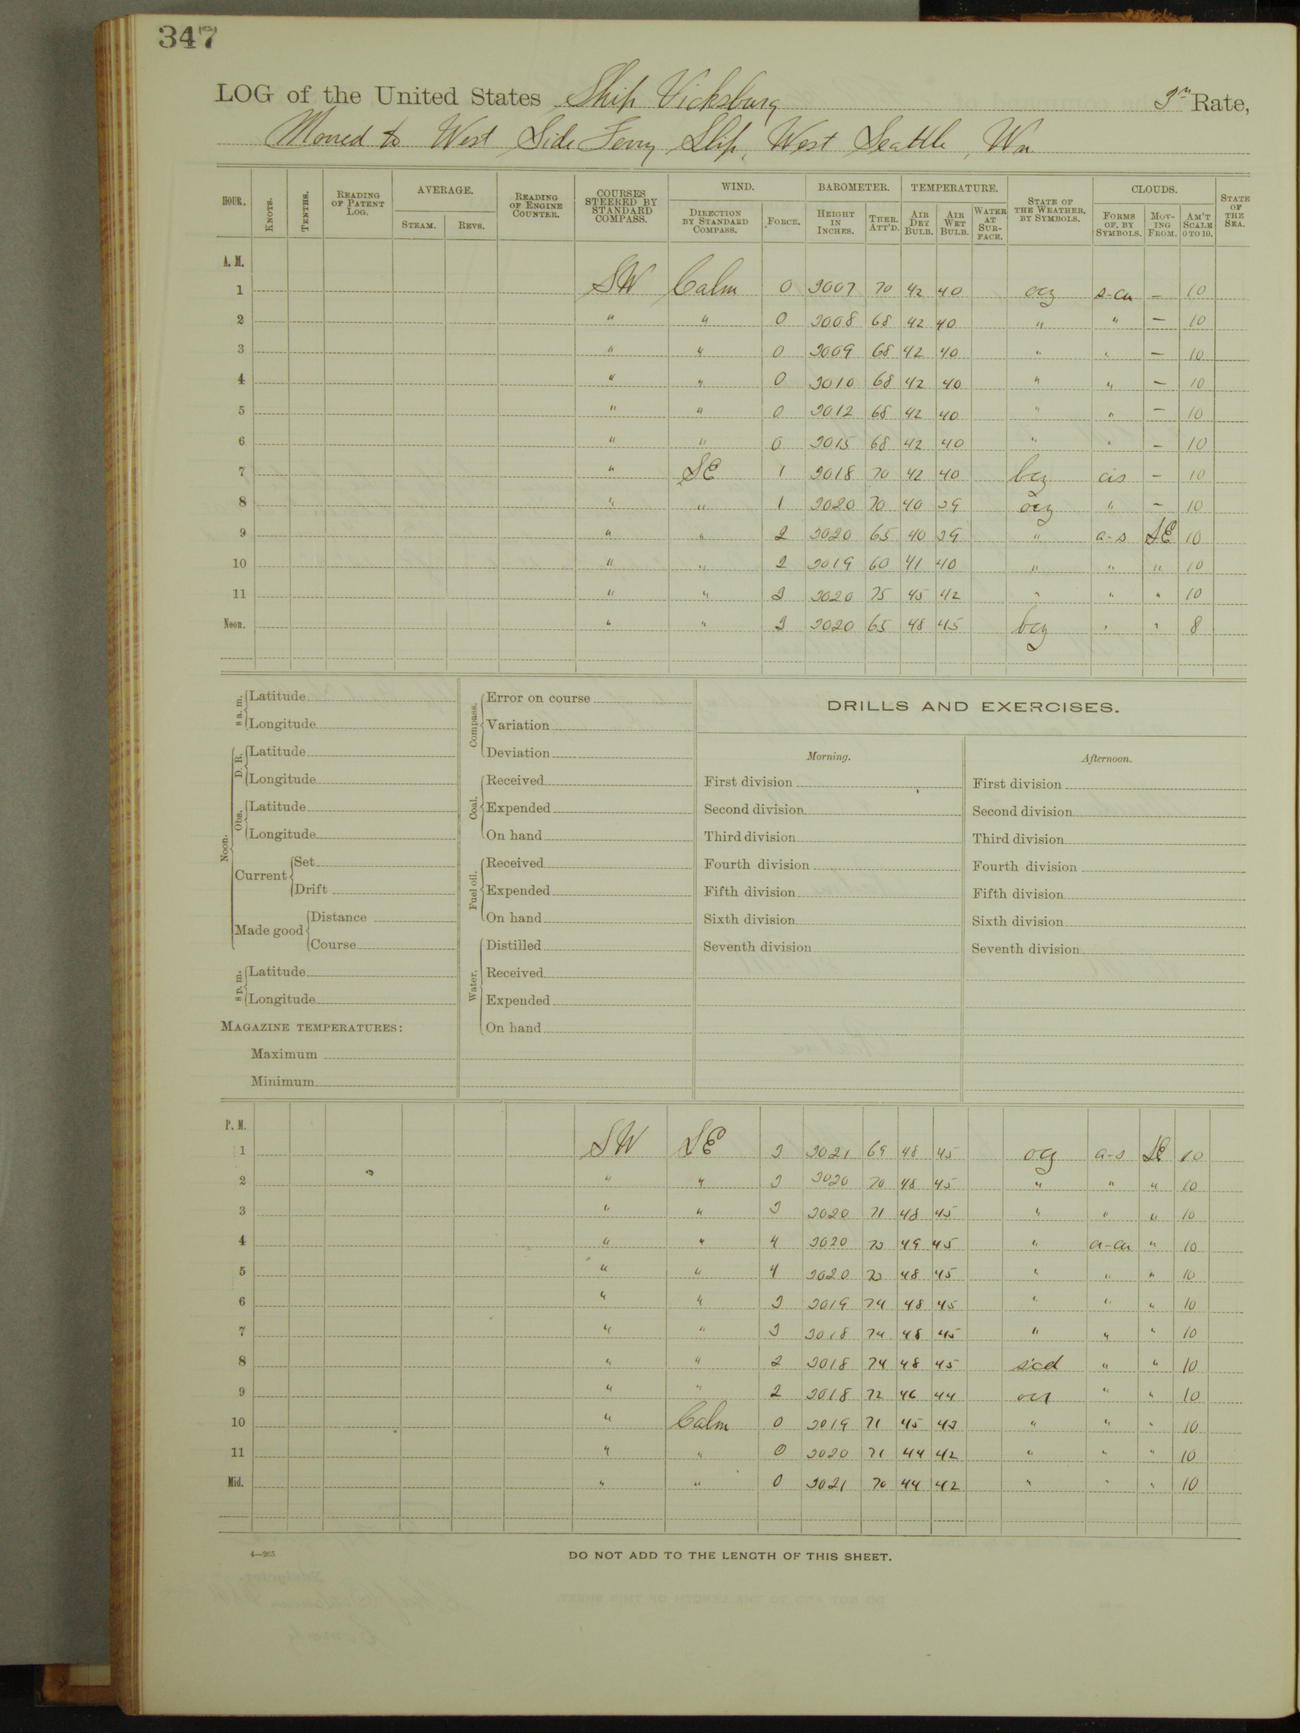 347
LOG of the United States Ship Vicksburg 3rd Rate,
Moored to West Side Ferry Slip, West Seattle, Wn
HOUR. KNOTS. TENTHS. READING OF PATENT LOG. AVERAGE. STEAM. REVS. READING OF ENGINE COUNTER. COURSES STEERED BY STANDARD COMPASS. WIND. DIRECTION BY STANDARD COMPASS. FORCE. BAROMETER. HEIGHT IN INCHES. THER. ATT'D. TEMPERATURE. AIR DRY BULB. AIR WET BULB. WATER AT SURFACE. STATE OF THE WEATHER, BY SYMBOLS. CLOUDS. FORMS OF, BY SYMBOLS. MOVING FROM. AM'T SCALE 0 TO 10. STATE OF THE SEA.
A. M.
1 SW Calm 0 3007 70 42 40 ocz s-cu — 10
2 " " 0 3008 68 42 40 " " — 10
3 " " 0 3009 68 42 40 " " — 10
4 " " 0 3010 68 42 40 " " — 10
5 " " 0 3012 68 42 40 " " — 10
6 " " 0 3015 68 42 40 " " — 10
7 " SE 1 3018 70 42 40 bcz cis — 10
8 " " 1 3020 70 40 39 ocz " — 10
9 " " 2 3020 65 40 39 " a-s SE 10
10 " " 2 3019 60 41 40 " " " 10
11 " " 3 3020 75 45 42 " " " 10
Noon. " " 3 3020 65 48 45 bcz " " 8
8 a. m. Latitude
Longitude
Noon. D. R. Latitude
Longitude
Obs. Latitude
Longitude
Current Set
Drift
Made good Distance
Course
8 p. m. Latitude
Longitude
MAGAZINE TEMPERATURES:
Maximum
Minimum
Compass. Error on course
Variation
Deviation
Coal. Received
Expended
On hand
Fuel oil. Received
Expended
On hand
Water. Distilled
Received
Expended
On hand
DRILLS AND EXERCISES.
Morning.
First division
Second division
Third division
Fourth division
Fifth division
Sixth division
Seventh division
Afternoon.
First division
Second division
Third division
Fourth division
Fifth division
Sixth division
Seventh division
P. M.
1 SW SE 3 3021 69 48 45 ocz a-s SE 10
2 " " 3 3020 70 48 45 " " " 10
3 " " 3 3020 71 48 45 " " " 10
4 " " 4 3020 73 49 45 " a-cu " 10
5 " " 4 3020 73 48 45 " " " 10
6 " " 3 3019 74 48 45 " " " 10
7 " " 3 3018 74 48 45 " " " 10
8 " " 2 3018 74 48 45 " " 10
9 " " 2 3018 72 46 44 " " 10
10 " Calm 0 3019 71 45 43 " " " 10
11 " " 0 3020 71 44 42 " " " 10
Mid. " " 0 3021 70 44 42 " " " 10
4—265
DO NOT ADD TO THE LENGTH OF THIS SHEET.